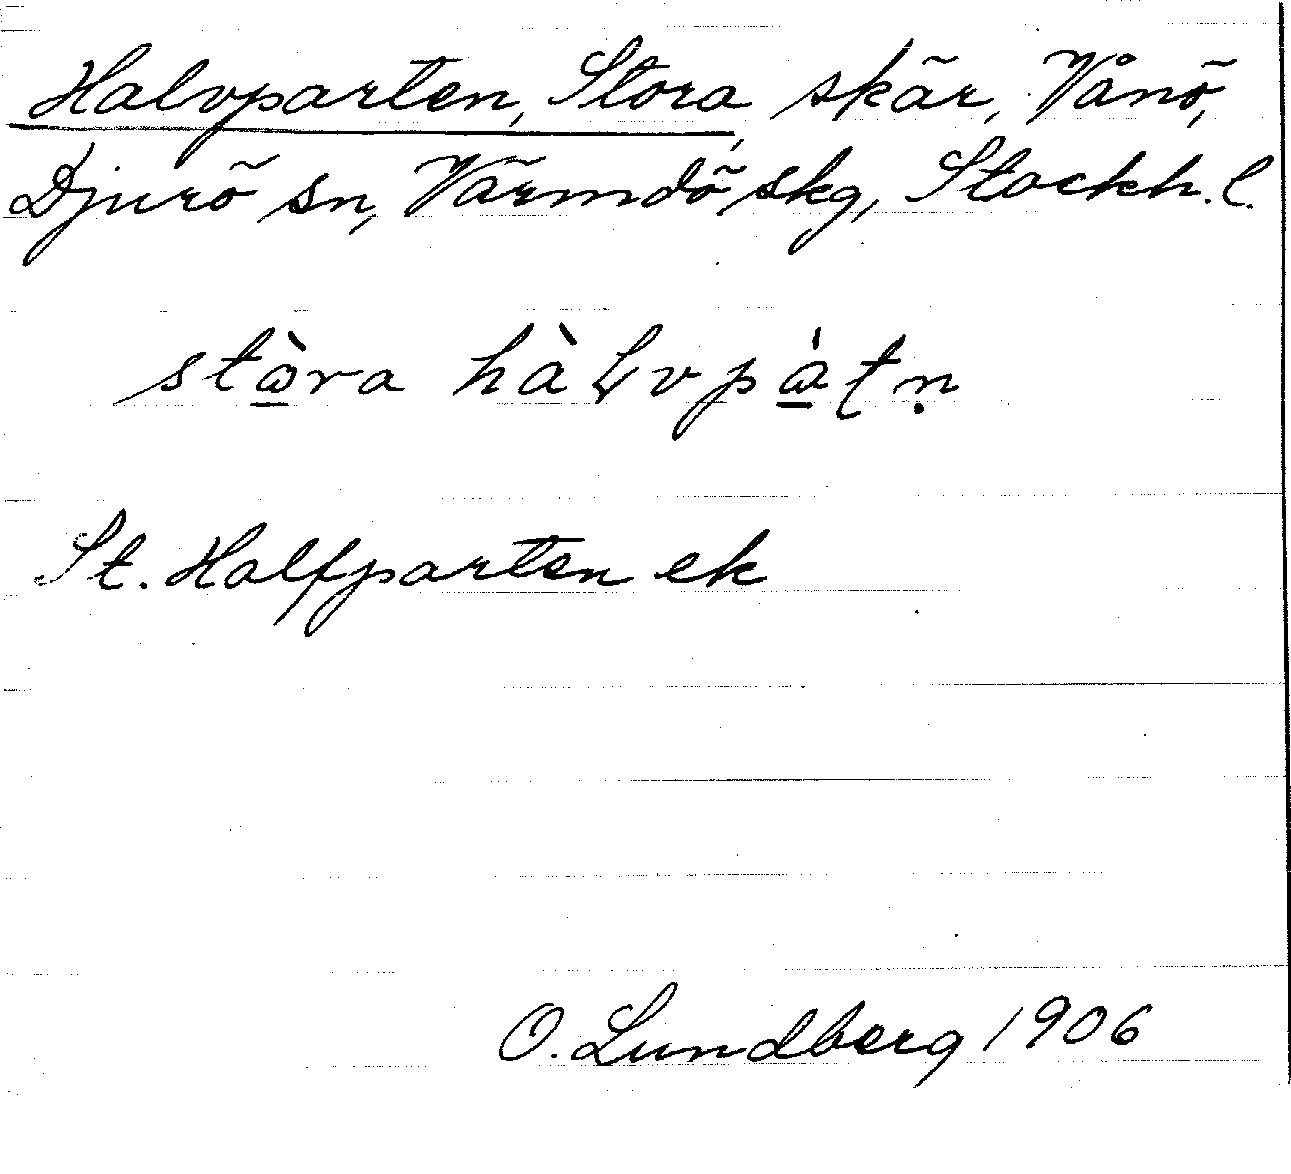 Halvparten, Stora, skär, Vånö,
Djurö sn, Värmdö skg, Stockh. l.
stὼ̲ra hàLvpὰ̲tṇ
St. Halfparten ek
O. Lundberg 1906